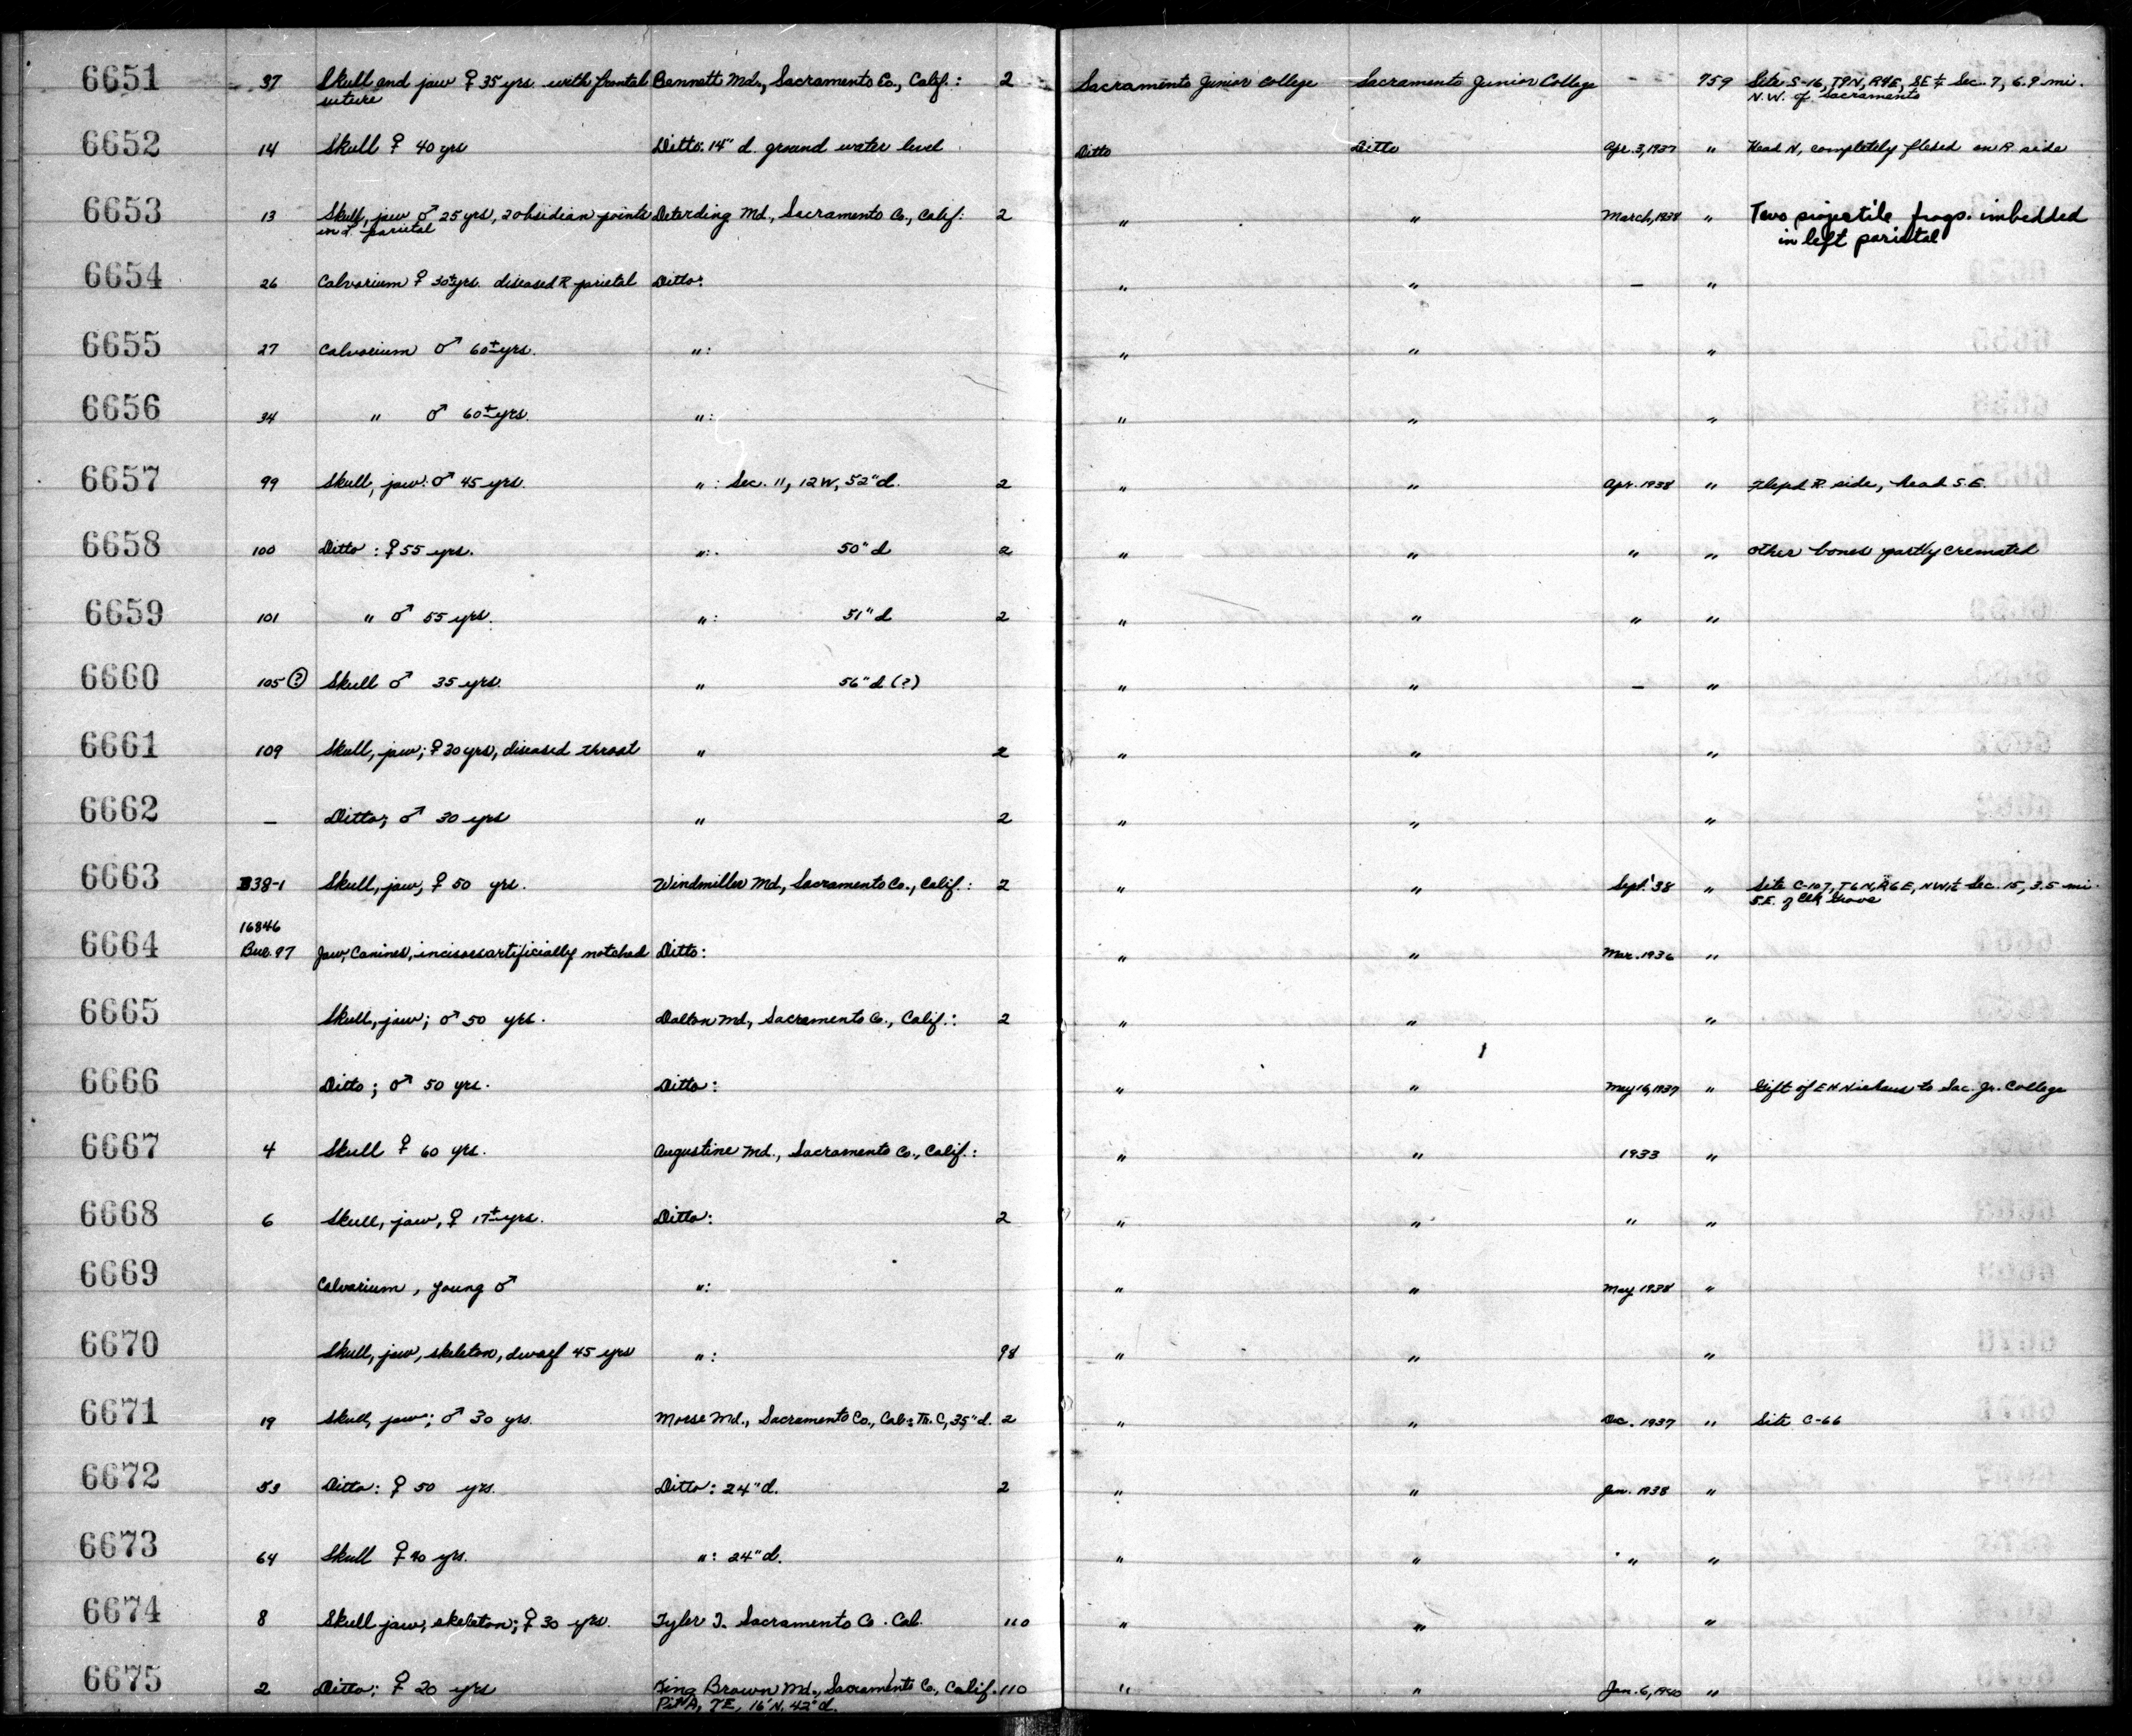 6651 37 Skull and jaw ♀ 35 yrs with frontal Bennett Md., Sacramento Co., Calif.: 2 Sacramento Junior College Sacramento Junior College - 959 Site S-16, T9N, R4E, SE ¼ Sec. 7, 6.9 mi.
suture N.W. of Sacramento
6652 14 Skull ♀ 40 yrs Ditto: 14" d. ground water level Ditto Ditto Apr. 3, 1937 " Head N, completely flexed on R. side
6653 13 Skull, jaw ♂ 25 yrs, 2 obsidian points Deterding Md., Sacramento Co., Calif: 2 " " March, 1938 " Two projectile frags. imbedded
in L. parietal in left parietal
6654 26 Calvarium ♀ 30± yrs. diseased R parietal Ditto: " " — "
6655 27 Calvarium ♂ 60± yrs. ": " " "
6656 34 " ♂ 60± yrs. ": " " "
6657 99 Skull, jaw: ♂ 45 yrs. ": Sec. 11, 12W, 52" d. 2 " " Apr. 1938 " Flexed R. side, head S.E.
6658 100 Ditto: ♀ 55 yrs. ": 50" d 2 " " " " other bones partly cremated
6659 101 " ♂ 55 yrs. ": 51" d 2 " " " "
6660 105 (?) Skull ♂ 35 yrs. " 56" d (?) " " — "
6661 109 Skull, jaw; ♀ 30 yrs, diseased throat " 2 " " "
6662 — Ditto; ♂ 30 yrs " 2 " " "
6663 B38-1 Skull, jaw, ♀ 50 yrs. Windmiller Md., Sacramento Co., Calif.: 2 " " Sept. '38 " Site C-107, T6N, R6E, NW¼ Sec. 15, 3.5 mi.
S.E. of Elk Grove
16846
6664 Bur. 97 Jaw, Canines, incisors artificially notched Ditto: " " Mar. 1936 "
6665 Skull, jaw; ♂ 50 yrs. Dalton Md, Sacramento Co., Calif.: 2 " " "
6666 Ditto; ♂ 50 yrs. Ditto: " " May 16, 1937 " Gift of E H Niehaus to Sac. Jr. College
6667 4 Skull ♀ 60 yrs. Augustine Md., Sacramento Co., Calif.: " " 1933 "
6668 6 Skull, jaw, ♀ 17± yrs. Ditto: 2 " " " "
6669 Calvarium, young ♂ ": " " May 1938 "
6670 Skull, jaw, skeleton, dwarf 45 yrs ": 98 " " "
6671 19 Skull, jaw; ♂ 30 yrs. Morse Md., Sacramento Co., Cal: Tr. C, 35" d. 2 " " Dec. 1937 " Site C-66
6672 53 Ditto: ♀ 50 yrs. Ditto: 24" d. 2 " " Jan. 1938 "
6673 64 Skull ♀ 40 yrs. ": 24" d. " " " "
6674 8 Skull jaw, skeleton; ♀ 30 yrs. Tyler I. Sacramento Co. Cal. 110 " " "
6675 2 Ditto: ♀ 20 yrs King Brown Md., Sacramento Co, Calif. 110 " " Jan. 6, 1940 "
Pit A, 7E, 16' N. 42" d.